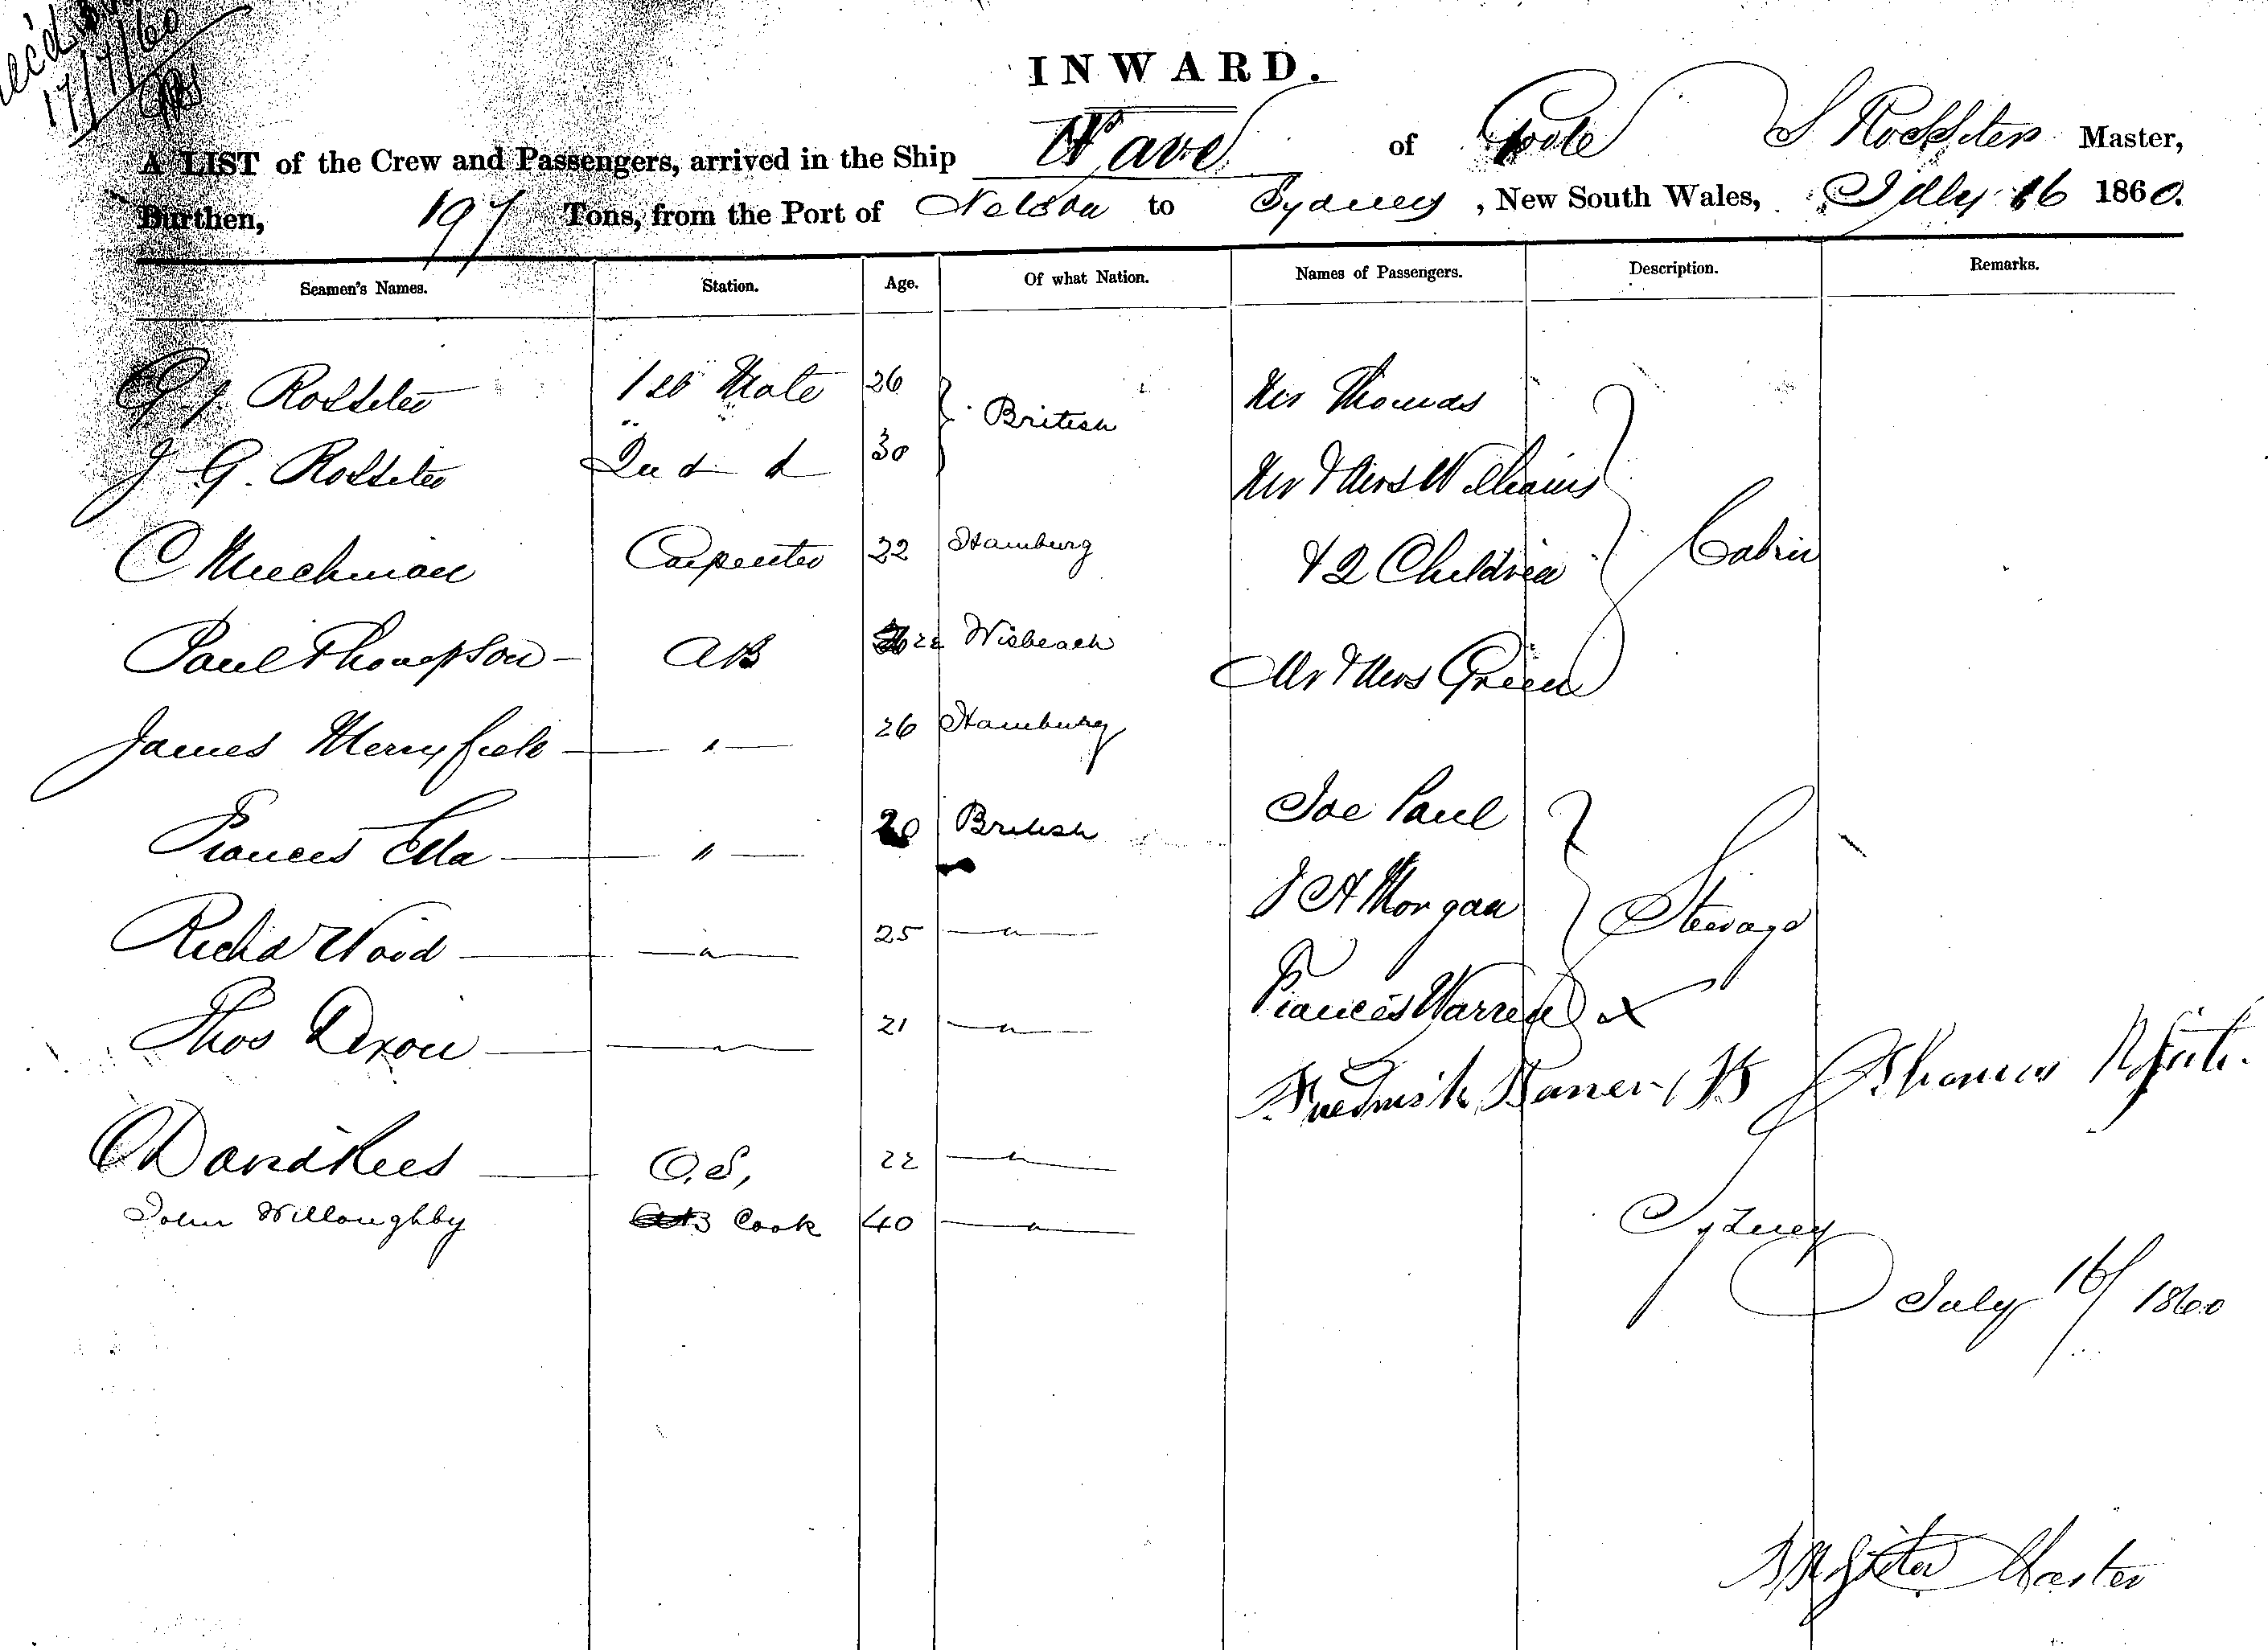 17/7/60
INWARD.
A LIST of the Crew and Passengers, arrived in the Ship Wave of Poole S Rossiter Master,
Burthen, 197 Tons, from the Port of Nelson to Sydney, New South Wales, July 16 1860.
Seamen's Names. Station. Age. Of what Nation. Names of Passengers. Description. Remarks.
G J Rossiter 1st Mate 26 British Mr Thomas
J G. Rossiter 2nd d 30 Mr & Mrs Williams
C Muchman Carpenter 22 Hamburg & 2 Children Cabin
Paul Thompson AB 22 Wisbeach Mr & Mrs Green
James Merryfield " 26 Hamburg
Frances Ella " 20 British Joe Paul
J A Morgan Steerage
Richd Wood " 25 "
Frances Warren x
Thos Dixon " 21 "
Fredrick Thomas
David Rees O.S, 22 "
John Willoughby Cook 40 " Sydney
July 16/1860
Rossiter Master